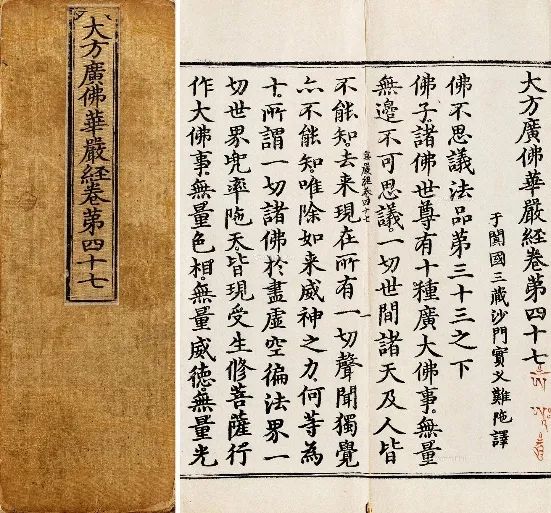 大方廣佛華嚴経卷第四十七
大方廣佛華嚴経卷第四十七
于闐國三藏沙門實叉難陁譯
佛不思議法品第三十三之下
佛子。諸佛世尊有十種廣大佛事。無量
無邊不可思議一切世間諸天及人皆
華嚴経卷四十七
不能知。去来現在所有一切聲聞獨覺
亦不能知。唯除如来威神之力。何等為
十。所謂一切諸佛於盡虛空徧法界一
切世界兜率陁天。皆現受生修菩薩行
作大佛事。無量色相。無量威德。無量光